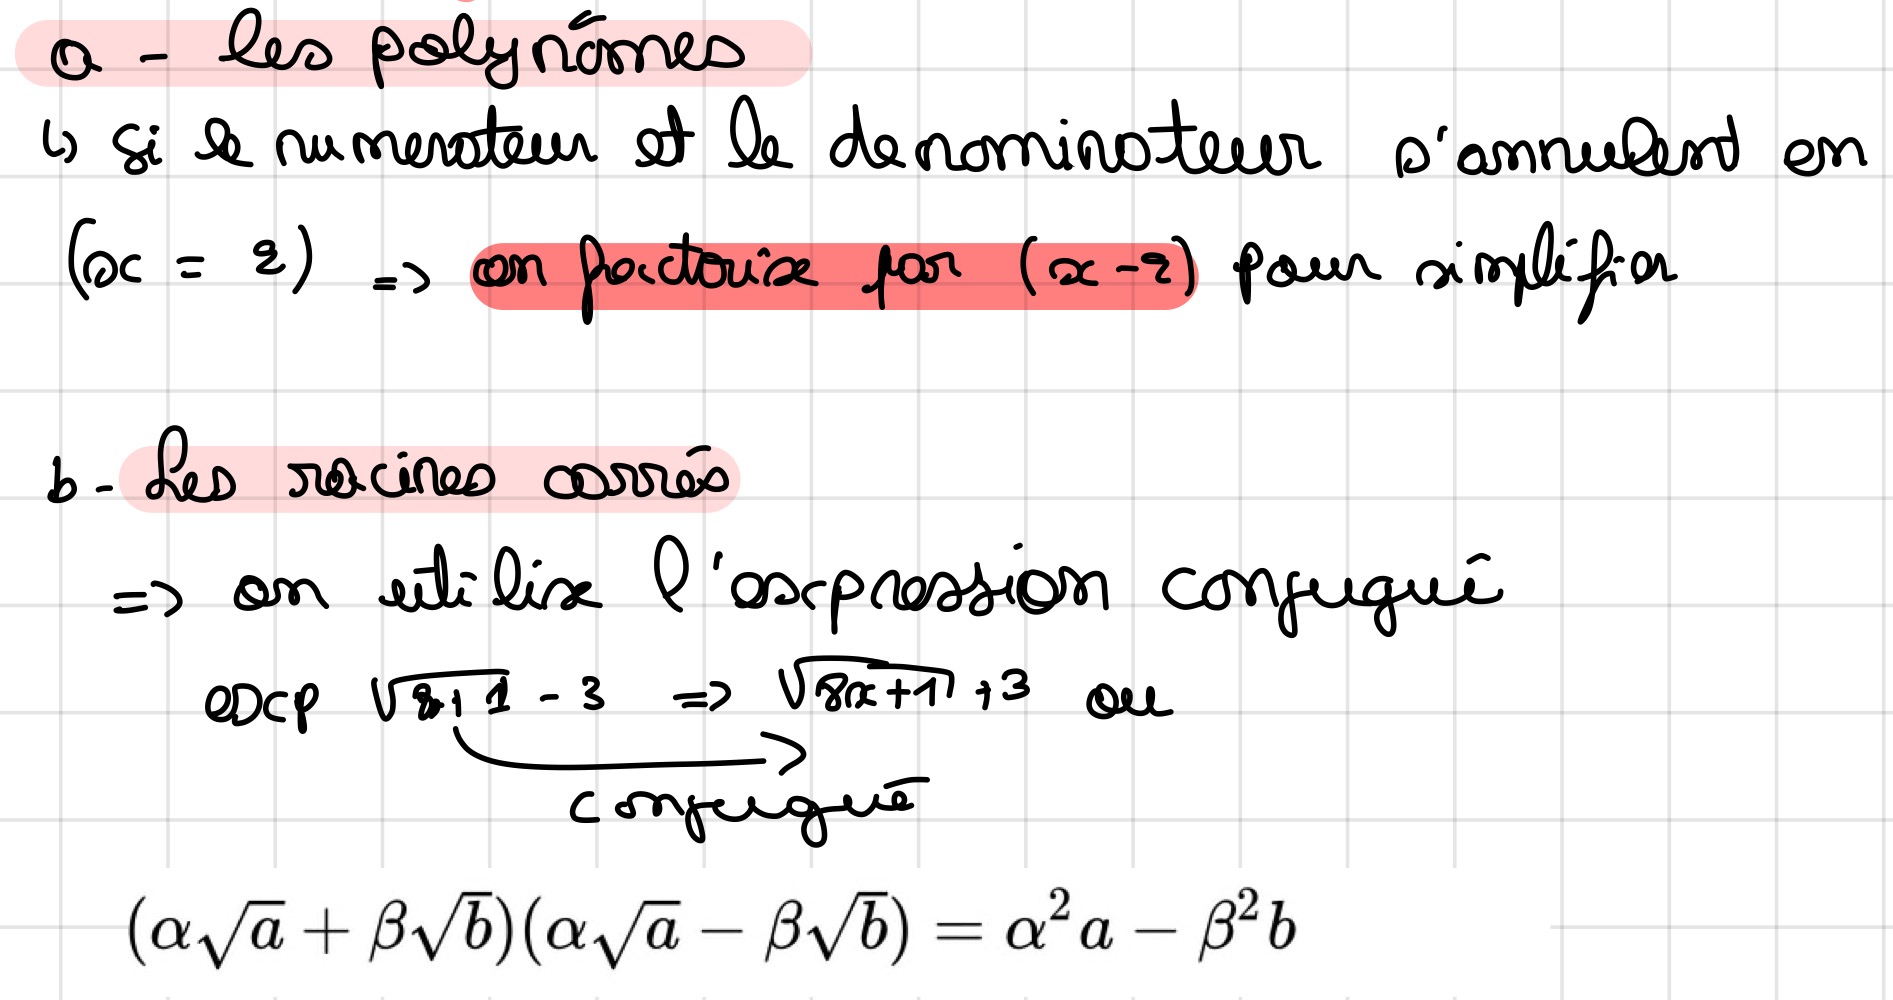 a - les polynômes
↳ si le numerateur et le denominateur s'annulent en
(x = 2) => on factorise par (x - 2) pour simplifier
b - Les racines carrés
=> on utilise l'expression conjugué
exp √8x+1 - 3 => √8x+1 + 3 ou
conjugué
(α√a + β√b)(α√a − β√b) = α²a − β²b